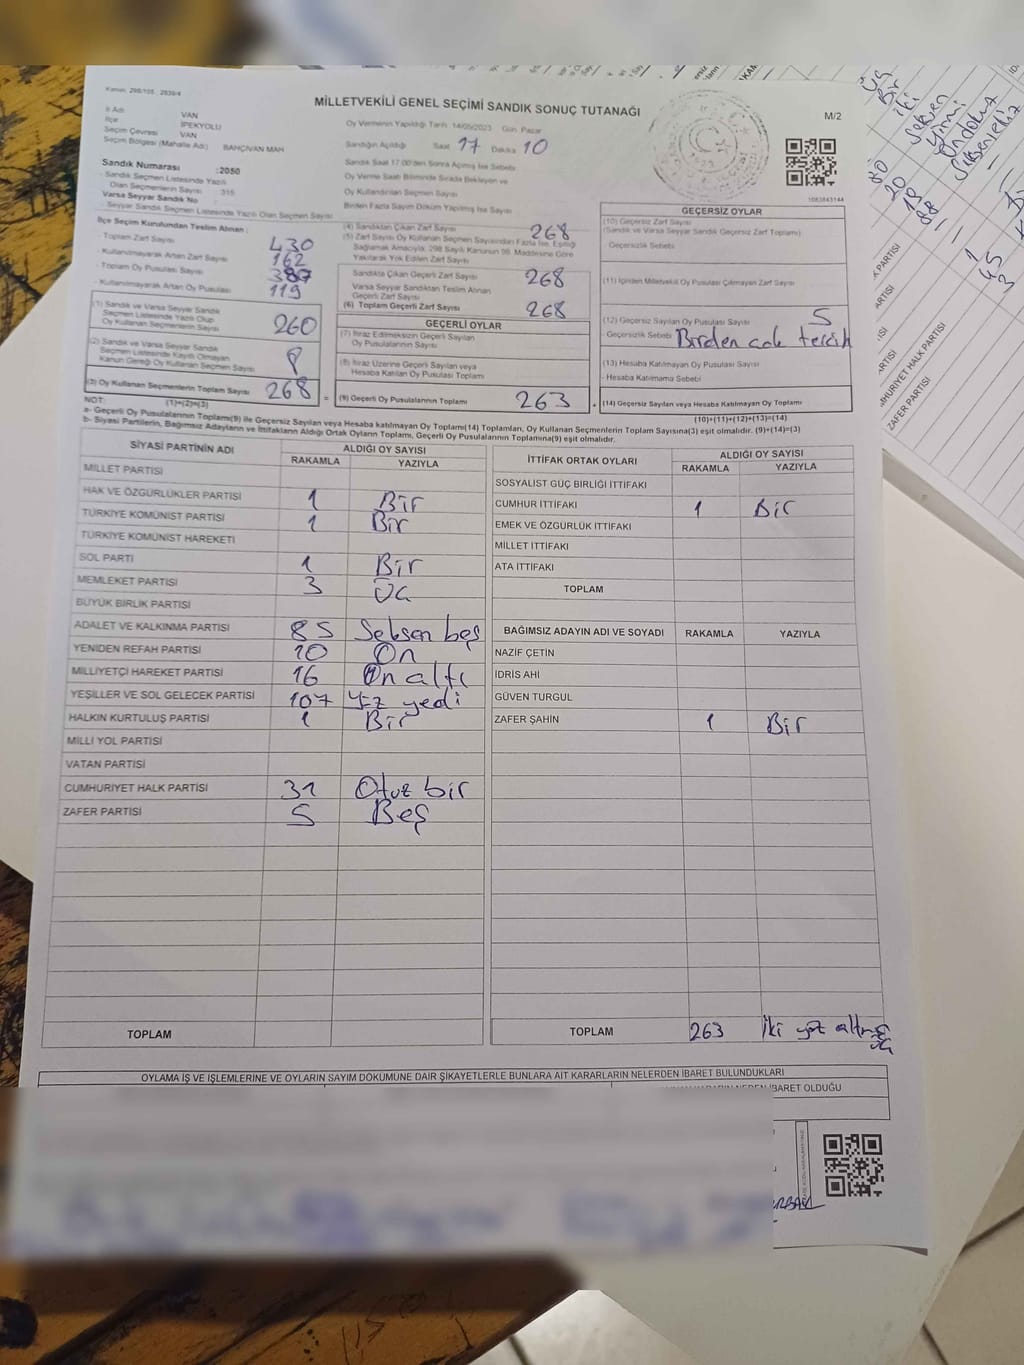 MİLLETVEKİLİ GENEL SEÇİMİ SANDIK SONUÇ TUTANAĞI
M/2
İl Adı VAN
İlçe İPEKYOLU
Seçim Çevresi VAN
Seçim Bölgesi (Mahalle Adı) BAHÇIVAN MAH
Oy Vermenin Yapıldığı Tarih 14/05/2023 Gün Pazar
Sandığın Açıldığı Saat 17 Dakika 10
Sandık Saat 17.00'den Sonra Açılmış İse Sebebi
Oy Verme Saati Bitiminde Sırada Bekleyen ve
Oy Kullandırılan Seçmen Sayısı
Birden Fazla Sayım Döküm Yapılmış İse Sayısı
Sandık Numarası :2050
- Sandık Seçmen Listesinde Yazılı
Olan Seçmenlerin Sayısı : 315
Varsa Seyyar Sandık No
- Seyyar Sandık Seçmen Listesinde Yazılı Olan Seçmen Sayısı
1083843144
İlçe Seçim Kurulundan Teslim Alınan :
- Toplam Zarf Sayısı 430
- Kullanılmayarak Artan Zarf Sayısı 162
- Toplam Oy Pusulası Sayısı
- Kullanılmayarak Artan Oy Pusulası 119
(1) Sandık ve Varsa Seyyar Sandık
Seçmen Listesinde Yazılı Olup
Oy Kullanan Seçmenlerin Sayısı 260
(2) Sandık ve Varsa Seyyar Sandık
Seçmen Listesinde Kayıtlı Olmayan
Kanun Gereği Oy Kullanan Seçmen Sayısı 8
(3) Oy Kullanan Seçmenlerin Toplam Sayısı 268
(1)+(2)=(3)
(4) Sandıktan Çıkan Zarf Sayısı 268
(5) Zarf Sayısı Oy Kullanan Seçmen Sayısından Fazla İse, Eşitliği
Sağlamak Amacıyla, 298 Sayılı Kanunun 98. Maddesine Göre
Yakılarak Yok Edilen Zarf Sayısı
Sandıkta Çıkan Geçerli Zarf Sayısı 268
Varsa Seyyar Sandıktan Teslim Alınan
Geçerli Zarf Sayısı
(6) Toplam Geçerli Zarf Sayısı 268
GEÇERLİ OYLAR
(7) İtiraz Edilmeksizin Geçerli Sayılan
Oy Pusulalarının Sayısı
(8) İtiraz Üzerine Geçerli Sayılan veya
Hesaba Katılan Oy Pusulası Toplamı
= (9) Geçerli Oy Pusulalarının Toplamı 263
GEÇERSİZ OYLAR
(10) Geçersiz Zarf Sayısı
(Sandık ve Varsa Seyyar Sandık Geçersiz Zarf Toplamı)
Geçersizlik Sebebi
(11) İçinden Milletvekili Oy Pusulası Çıkmayan Zarf Sayısı
(12) Geçersiz Sayılan Oy Pusulası Sayısı 5
Geçersizlik Sebebi Birden çok tercih
(13) Hesaba Katılmayan Oy Pusulası Sayısı
- Hesaba Katılmama Sebebi
+ (14) Geçersiz Sayılan veya Hesaba Katılmayan Oy Toplamı
(10)+(11)+(12)+(13)=(14)
NOT:
a- Geçerli Oy Pusulalarının Toplamı(9) ile Geçersiz Sayılan veya Hesaba katılmayan Oy Toplamı(14) Toplamları, Oy Kullanan Seçmenlerin Toplam Sayısına(3) eşit olmalıdır. (9)+(14)=(3)
b- Siyasi Partilerin, Bağımsız Adayların ve İttifakların Aldığı Ortak Oyların Toplamı, Geçerli Oy Pusulalarının Toplamına(9) eşit olmalıdır.
SİYASİ PARTİNİN ADI ALDIĞI OY SAYISI
RAKAMLA YAZIYLA
MİLLET PARTİSİ
HAK VE ÖZGÜRLÜKLER PARTİSİ 1 Bir
TÜRKİYE KOMÜNİST PARTİSİ 1 Bir
TÜRKİYE KOMÜNİST HAREKETİ
SOL PARTİ 1 Bir
MEMLEKET PARTİSİ 3 Üç
BÜYÜK BİRLİK PARTİSİ
ADALET VE KALKINMA PARTİSİ 85 Seksen beş
YENİDEN REFAH PARTİSİ 10 On
MİLLİYETÇİ HAREKET PARTİSİ 16 On altı
YEŞİLLER VE SOL GELECEK PARTİSİ 107 Yüz yedi
HALKIN KURTULUŞ PARTİSİ 1 Bir
MİLLİ YOL PARTİSİ
VATAN PARTİSİ
CUMHURİYET HALK PARTİSİ 31 Otuz bir
ZAFER PARTİSİ 5 Beş
TOPLAM
İTTİFAK ORTAK OYLARI ALDIĞI OY SAYISI
RAKAMLA YAZIYLA
SOSYALİST GÜÇ BİRLİĞİ İTTİFAKI
CUMHUR İTTİFAKI 1 Bir
EMEK VE ÖZGÜRLÜK İTTİFAKI
MİLLET İTTİFAKI
ATA İTTİFAKI
TOPLAM
BAĞIMSIZ ADAYIN ADI VE SOYADI RAKAMLA YAZIYLA
NAZİF ÇETİN
İDRİS AHİ
GÜVEN TURGUL
ZAFER ŞAHİN 1 Bir
TOPLAM 263 İki yüz altmış üç
OYLAMA İŞ VE İŞLEMLERİNE VE OYLARIN SAYIM DÖKÜMÜNE DAİR ŞİKAYETLERLE BUNLARA AİT KARARLARIN NELERDEN İBARET BULUNDUKLARI
İBARET OLDUĞU
Bir
iki
Seksen
yirmi
Ondokuz
Seksensekiz
80
20
19
88
1
45
3
K PARTİSİ
ARTİSİ
İSİ
ARTİSİ
HURİYET HALK PARTİSİ
ZAFER PARTİSİ